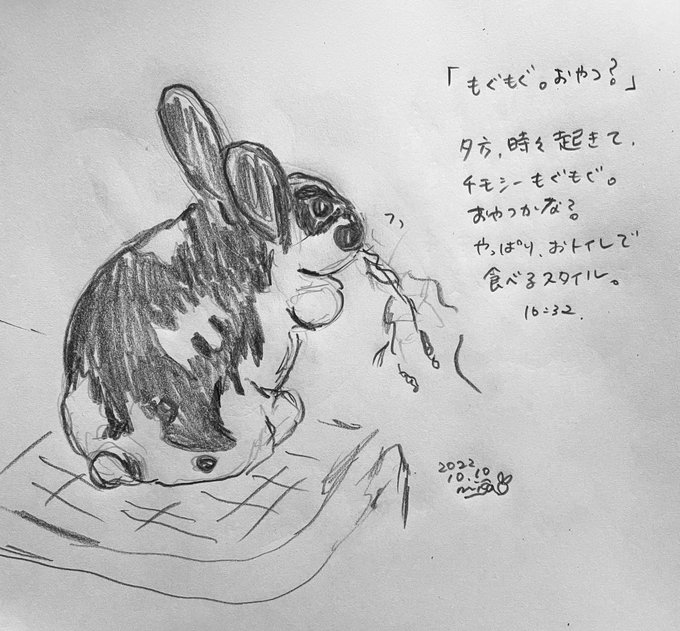 「もぐもぐ。おやつ?」
夕方、時々起きて、
チモシーもぐもぐ。
おやつかな?
やっぱり、おトイレで
食べるスタイル。
16:32.
2022
10.10